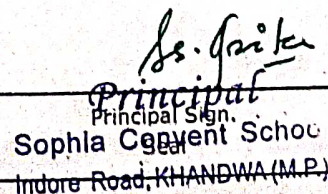 Principal
Principal Sign.
Seal
Sophia Convent Schoo
Indore Road, KHANDWA (M.P.)